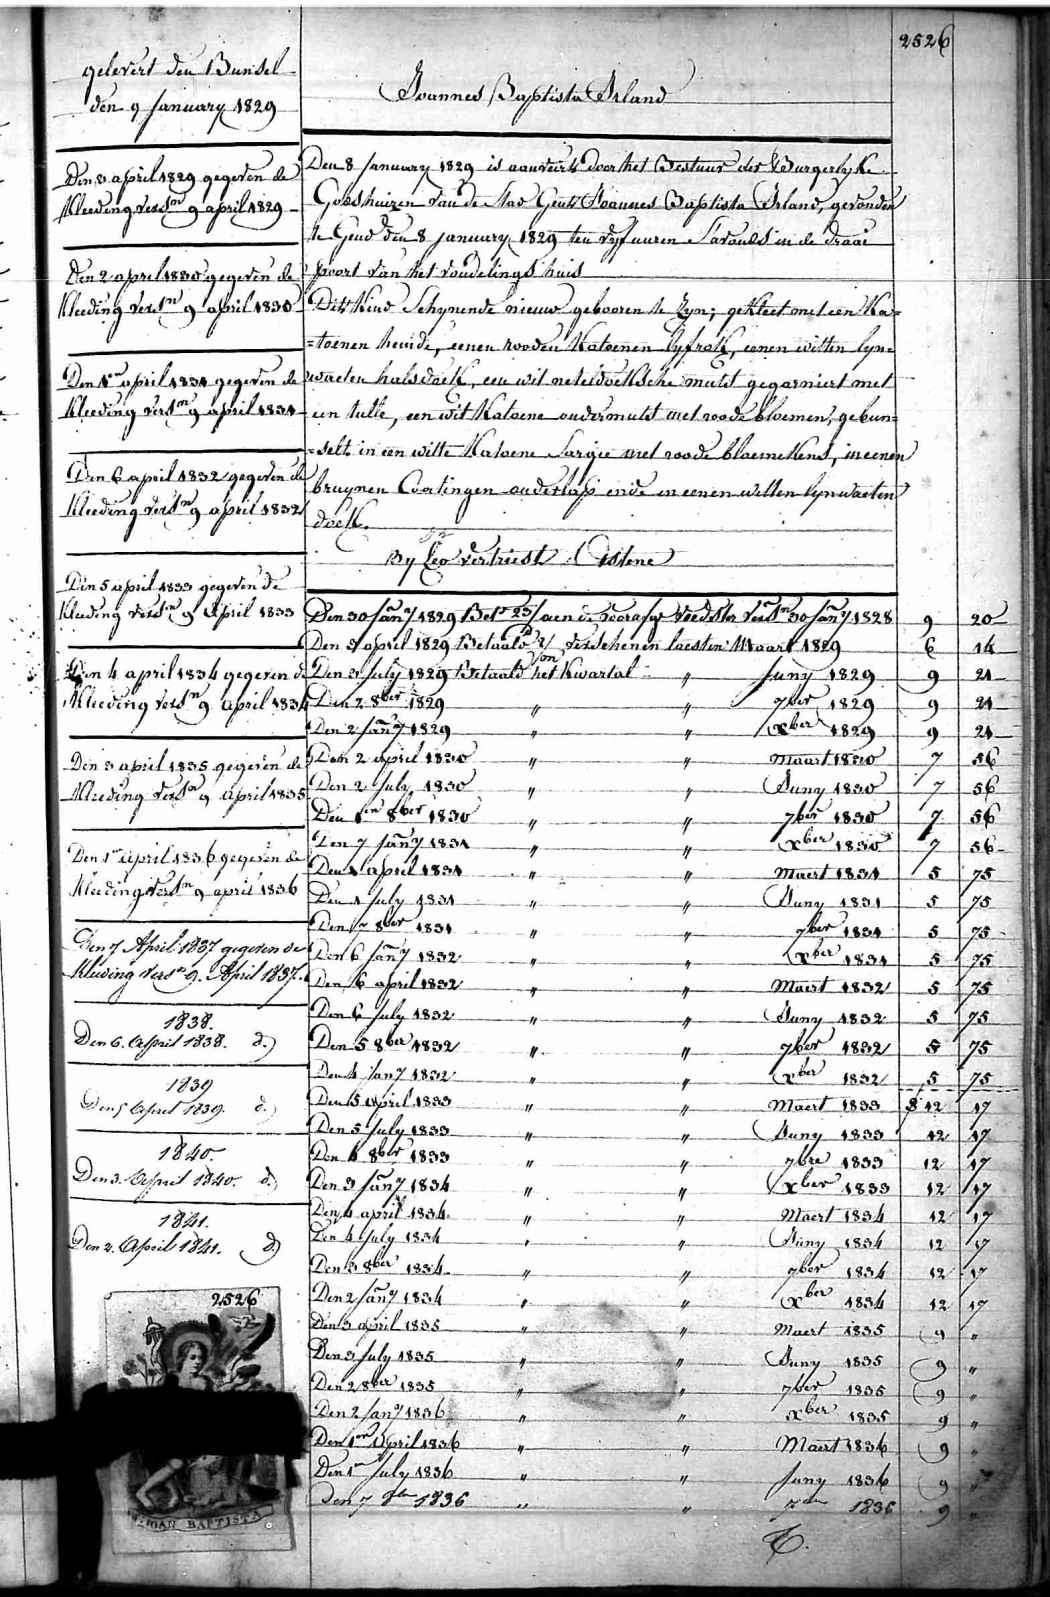 2526
gelevert den Bunsel
den 9 January 1829
Joannes Baptista Irland
Den 8 april 1829 gegeven de
Kleeding versn 9 april 1829
Den 2 april 1830 gegeven de
Kleeding versn 9 april 1830
Den 1en april 1831 gegeven de
Kleeding versn 9 april 1831
Den 6 april 1832 gegeven de
Kleeding versn 9 april 1832
Den 5 april 1833 gegeven de
Kleeding versn 9 april 1833
Den 4 april 1834 gegeven de
Kleeding versn 9 april 1834
Den 3 april 1835 gegeven de
Kleeding versn 9 april 1835
Den 1en april 1836 gegeven de
Kleeding versn 9 april 1836
Den 7 April 1837 gegeven de
Kleeding versn 9. April 1837.
1838.
Den 6. April 1838. d.)
1839
Den 5 April 1839. d.)
1840.
Den 3. April 1840. d.)
1841.
Den 2. April 1841. d)
2526
BAPTISTA
Den 8 January 1829 is aanveirt door het Bestuur der Burgerlyke
Godshuizen van de Stad Gent Joannes Baptista Irland, gevonden
te Gend den 8 january 1829 ten vyf uuren s'avonds in de draai
poort van het vondelings huis
Dit Kind Schynende nieuw gebooren te zyn; gekleet met een Ka=
=toenen hemde, eenen rooden Katoenen lyfrok, eenen witten lyn
waeten halsdoek, een wit neteldoeksche mutst gegarniert met
een tulle, een wit Katoene ondermutst met roode bloemen, gebun=
=selt in een witte Katoene Sargie met roode bloemekens, in eenen
bruynen Coatingen onderlap ende in eenen witten lynwaeten
doek.
By Leo vertriest. Oistene
Den 30 Jany 1829 Bet 23 aen de voorafge voedster versn 30 Jany 1828 9 20
Den 3 april 1829 Betaald verschenen laesten Maart 1829 6 14
Den 3 July 1829 Betaald von het Kwartal " Juny 1829 9 21
Den 2 8ber 1829 " " 7ber 1829 9 21
Den 2 Jany 1829 " " xber 1829 9 21
Den 2 april 1830 " " Maart 1830 7 56
Den 2 July 1830 " " Juny 1830 7 56
Den 1en 8ber 1830 " " 7ber 1830 7 56
Den 7 Jany 1831 " " xber 1830 7 56
Den 1 april 1831 " " Maert 1831 5 75
Den 1 July 1831 " " Juny 1831 5 75
Den 7 8ber 1831 " " 7ber 1831 5 75
Den 6 Jany 1832 " " xber 1831 5 75
Den 6 april 1832 " " Maert 1832 5 75
Den 6 July 1832 " " Juny 1832 5 75
Den 5 8ber 1832 " " 7ber 1832 5 75
Den 4 Jany 1832 " " xber 1832 5 75
Den 5 april 1833 " " Maert 1833 12 17
Den 5 July 1833 " " Juny 1833 12 17
Den 4 8ber 1833 " " 7bre 1833 12 17
Den 3 Jany 1834 " " xber 1833 12 17
Den 4 april 1834 " " Maert 1834 12 17
Den 4 July 1834 " " Juny 1834 12 17
Den 3 8ber 1834 " " 7ber 1834 12 17
Den 2 Jany 1834 " " xber 1834 12 17
Den 3 april 1835 " " Maert 1835 9 "
Den 3 July 1835 " " Juny 1835 9 "
Den 2 8ber 1835 " " 7ber 1835 9 "
Den 2 Jany 1836 " " xber 1835 9 "
Den 1en April 1836 " " Maert 1836 9 "
Den 1en July 1836 " " Juny 1836 9 "
Den 7 8bre 1836 " " 7bre 1836 9 "